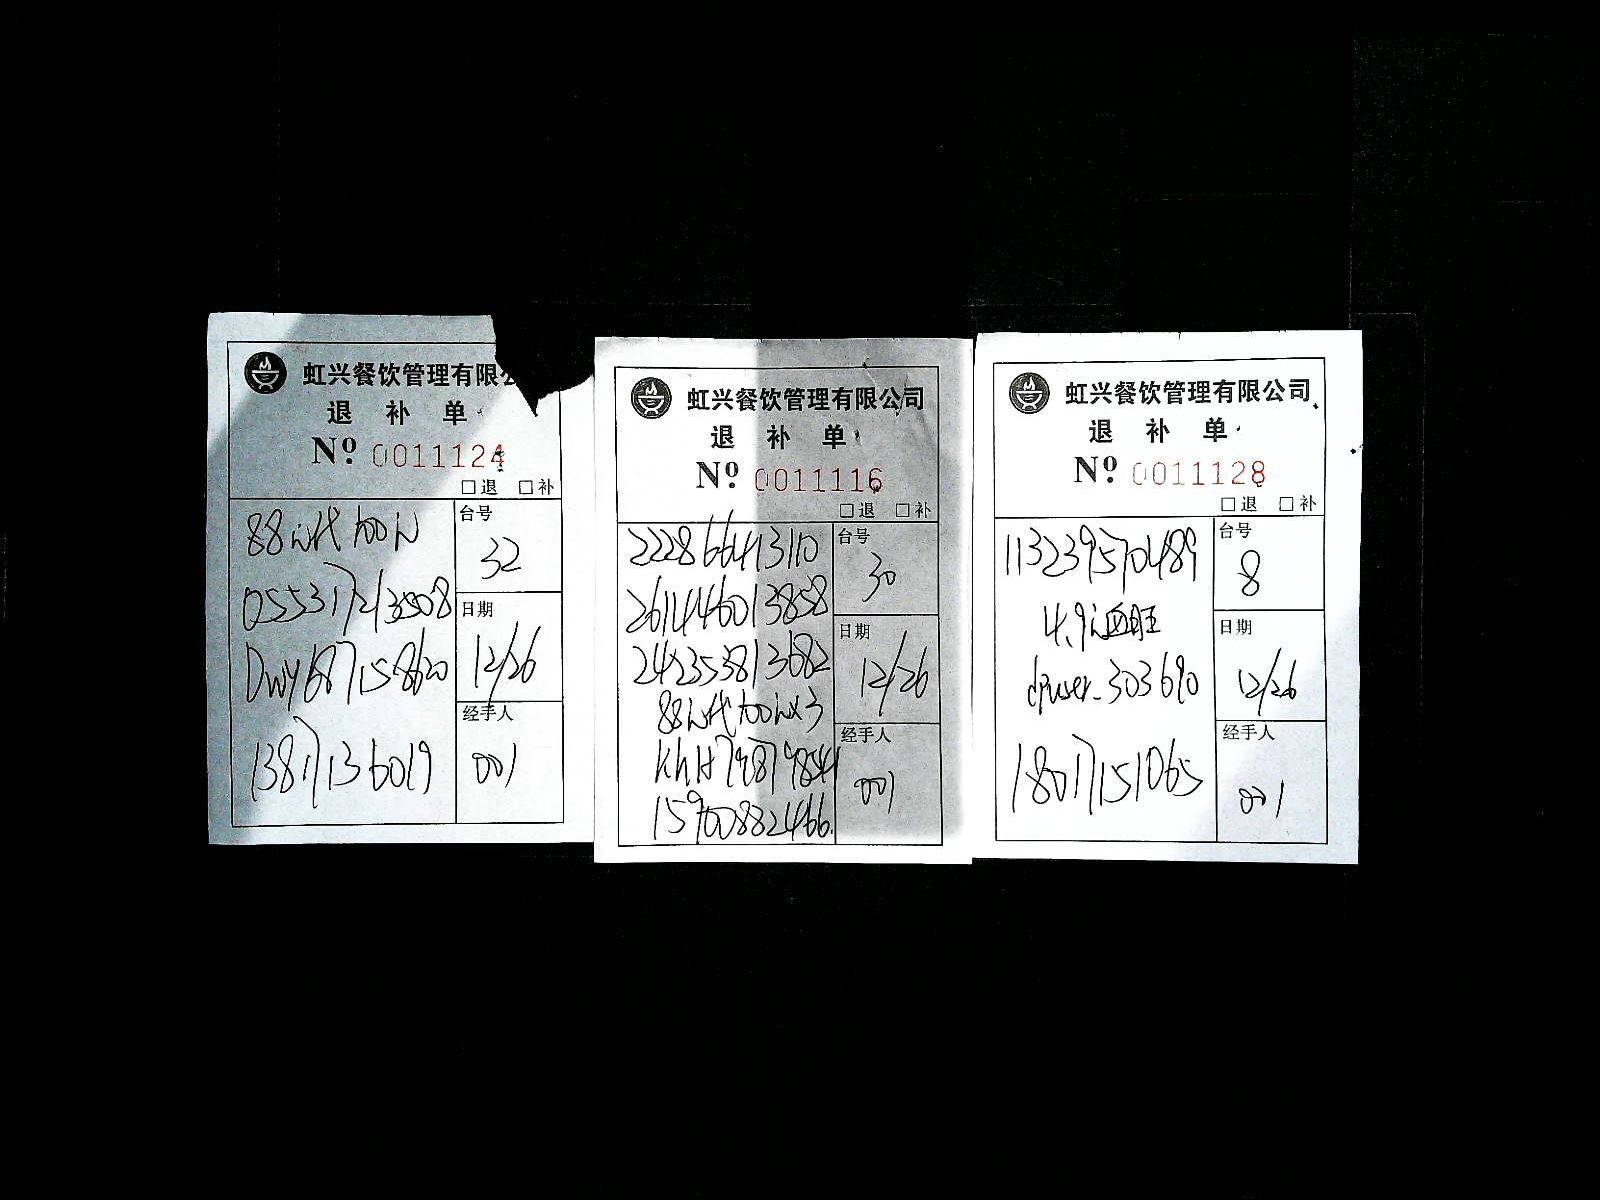 虹兴餐饮管理有限
退 补 单
Nº 0011124
□退 □补
88以代100以
0553172135508
Dwy687158620
13817136019
台号
32
日期
12/26
经手人
001
虹兴餐饮管理有限公司
退 补 单
Nº 0011116
□退 □补
222866413110
2611446013858
242353813682
88以代100以x3
15900882466
台号
30
日期
12/26
经手人
001
虹兴餐饮管理有限公司
退 补 单
Nº 0011128
□退 □补
113239570489
4.9
dpuser_303690
18017151065
台号
8
日期
12/26
经手人
001